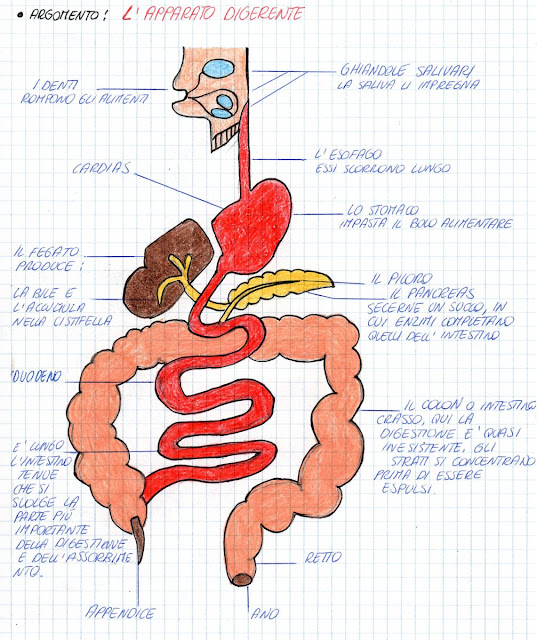 • ARGOMENTO: L'APPARATO DIGERENTE
I DENTI
ROMPONO GLI ALIMENTI
GHIANDOLE SALIVARI
LA SALIVA LI IMPREGNA
L'ESOFAGO
ESSI SCORRONO LUNGO
CARDIAS
LO STOMACO
IMPASTA IL BOLO ALIMENTARE
IL FEGATO
PRODUCE:
LA BILE E
L'ACCUGULA
NELLA CISTIFELLA
IL PILORO
IL PANCREAS
SECERNE UN SUCCO, IN
CUI ENZIMI COMPLETANO
QUELLI DELL'INTESTINO
DUODENO
IL COLON O INTESTINO
CRASSO, QUI LA
DIGESTIONE E' QUASI
INESISTENTE, GLI
STRATI SI CONCENTRANO
PRIMA DI ESSERE
ESPULSI.
E' LUNGO
L'INTESTINO
TENUE
CHE SI
SVOLGE LA
PARTE PIÙ
IMPORTANTE
DELLA DIGESTIONE
E DELL'ASSORBIME
NTO.
RETTO
APPENDICE
ANO